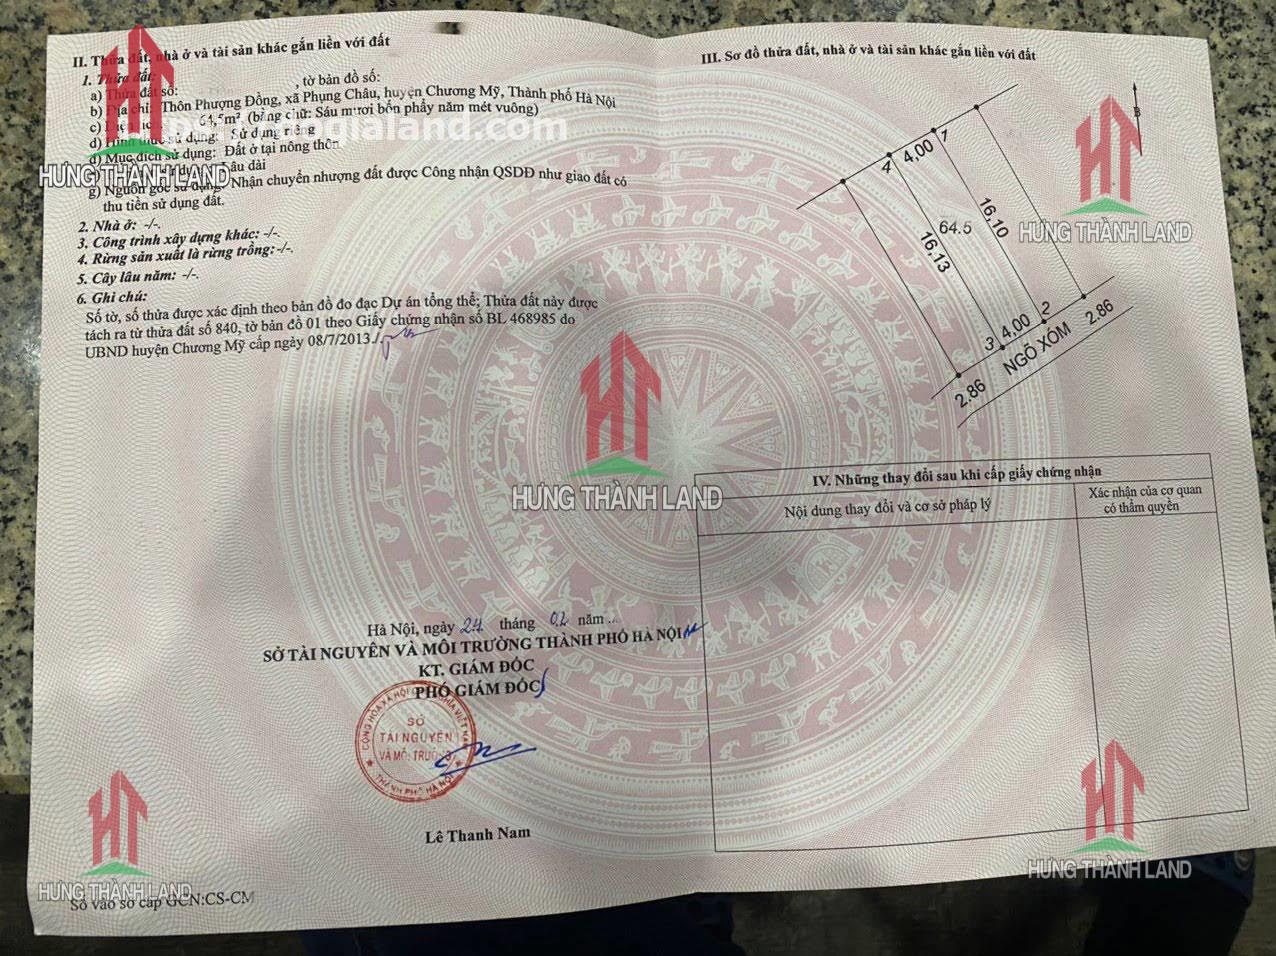 II. Thửa đất, nhà ở và tài sản khác gắn liền với đất
1. Thửa đất:
a) Thửa đất số: , tờ bản đồ số:
b) Địa chỉ: Thôn Phượng Đồng, xã Phụng Châu, huyện Chương Mỹ, Thành phố Hà Nội
64,5m², (bằng chữ: Sáu mươi bốn phẩy năm mét vuông)
d) Hình thức sử dụng: Sử dụng riêng
đ) Mục đích sử dụng: Đất ở tại nông thôn
Lâu dài
g) Nguồn gốc sử dụng: Nhận chuyển nhượng đất được Công nhận QSDĐ như giao đất có
thu tiền sử dụng đất.
2. Nhà ở: -/-.
3. Công trình xây dựng khác: -/-.
4. Rừng sản xuất là rừng trồng: -/-.
5. Cây lâu năm: -/-.
6. Ghi chú:
Số tờ, số thửa được xác định theo bản đồ đo đạc Dự án tổng thể; Thửa đất này được
tách ra từ thửa đất số 840, tờ bản đồ 01 theo Giấy chứng nhận số BL 468985 do
UBND huyện Chương Mỹ cấp ngày 08/7/2013./.
Hà Nội, ngày 24 tháng 02 năm ...
SỞ TÀI NGUYÊN VÀ MÔI TRƯỜNG THÀNH PHỐ HÀ NỘI
KT. GIÁM ĐỐC
PHÓ GIÁM ĐỐC
SỞ
TÀI NGUYÊN
VÀ MÔI TRƯỜNG
THÀNH PHỐ HÀ NỘI
Lê Thanh Nam
Số vào sổ cấp GCN:CS-CM
III. Sơ đồ thửa đất, nhà ở và tài sản khác gắn liền với đất
B
4 4,00 1
16,10
64.5
16,13
3 4,00 2
2.86 NGÕ XÓM 2.86
IV. Những thay đổi sau khi cấp giấy chứng nhận
Nội dung thay đổi và cơ sở pháp lý
Xác nhận của cơ quan
có thẩm quyền
HƯNG THÀNH LAND
HƯNG THÀNH LAND
HƯNG THÀNH LAND
HƯNG THÀNH LAND
HƯNG THÀNH LAND